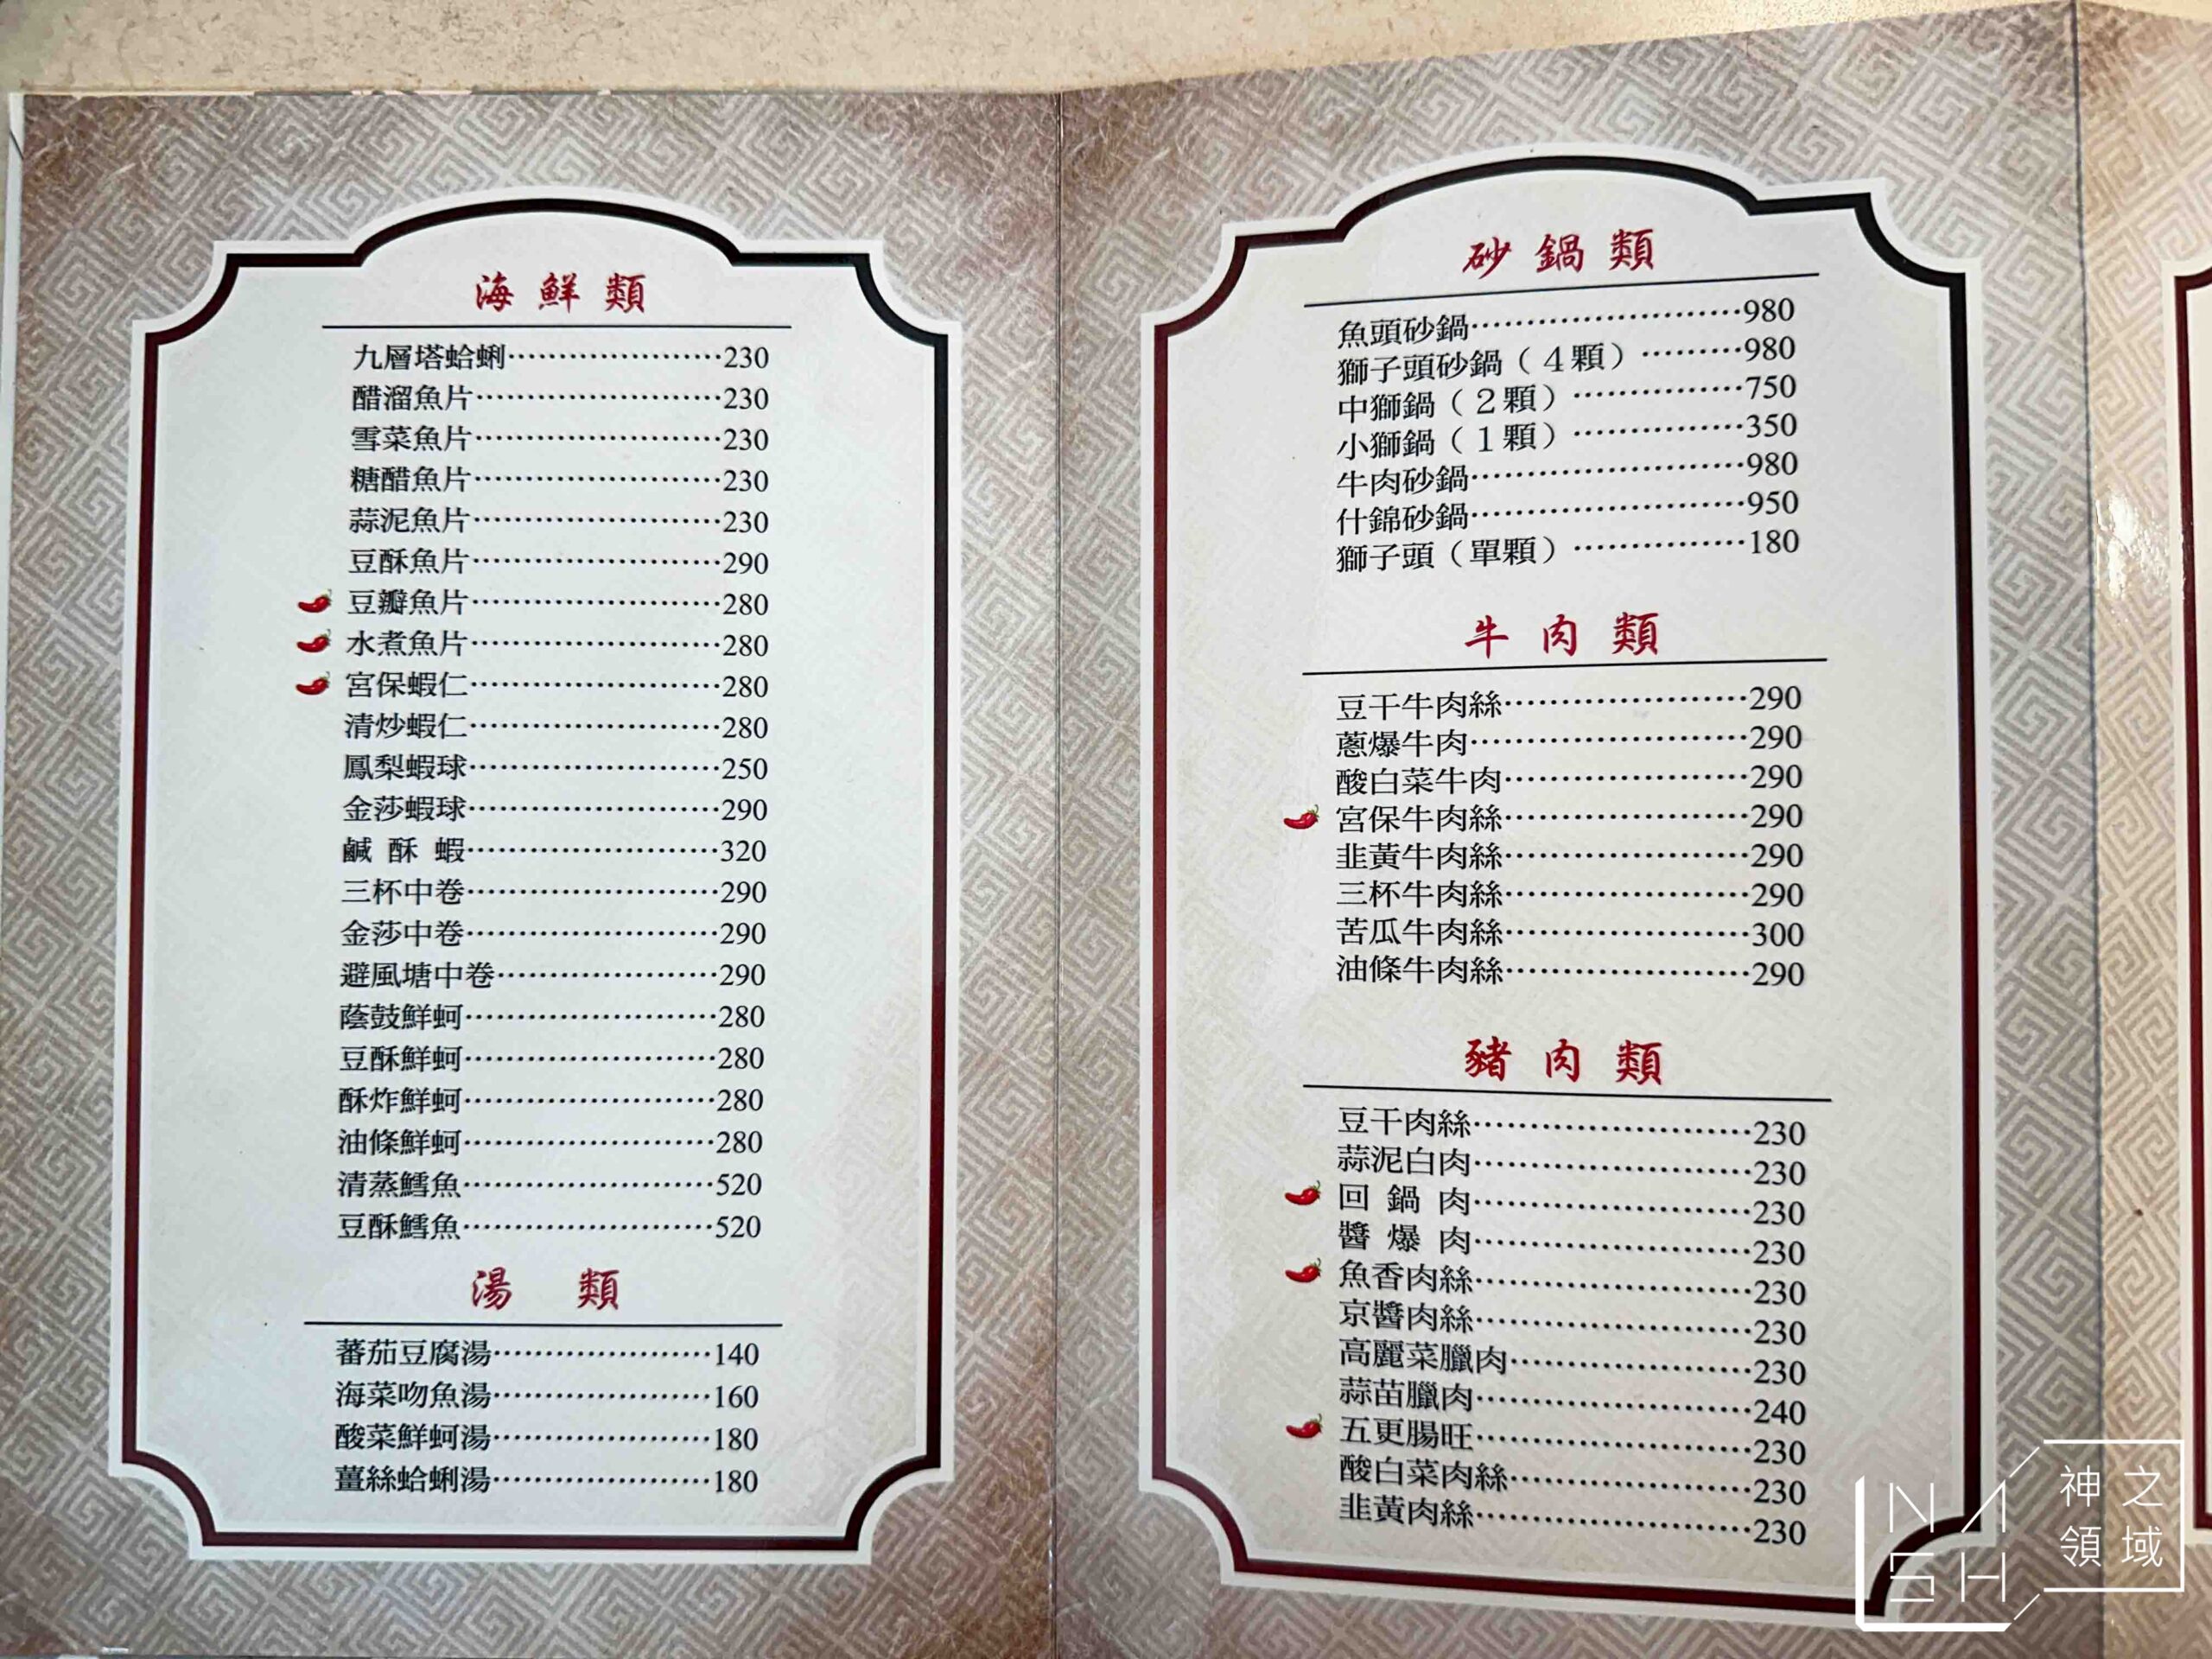 海鮮類
九層塔蛤蜊…………………230
醋溜魚片……………………230
雪菜魚片……………………230
糖醋魚片……………………230
蒜泥魚片……………………230
豆酥魚片……………………290
豆瓣魚片……………………280
水煮魚片……………………280
宮保蝦仁……………………280
清炒蝦仁……………………280
鳳梨蝦球……………………250
金莎蝦球……………………290
鹹酥蝦……………………320
三杯中卷……………………290
金莎中卷……………………290
避風塘中卷…………………290
蔭鼓鮮蚵……………………280
豆酥鮮蚵……………………280
酥炸鮮蚵……………………280
油條鮮蚵……………………280
清蒸鱈魚……………………520
豆酥鱈魚……………………520
湯類
蕃茄豆腐湯…………………140
海菜吻魚湯…………………160
酸菜鮮蚵湯…………………180
薑絲蛤蜊湯…………………180
砂鍋類
魚頭砂鍋……………………980
獅子頭砂鍋(4顆)………980
中獅鍋(2顆)……………750
小獅鍋(1顆)……………350
牛肉砂鍋……………………980
什錦砂鍋……………………950
獅子頭(單顆)……………180
牛肉類
豆干牛肉絲…………………290
蔥爆牛肉……………………290
酸白菜牛肉…………………290
宮保牛肉絲…………………290
韭黃牛肉絲…………………290
三杯牛肉絲…………………290
苦瓜牛肉絲…………………300
油條牛肉絲…………………290
豬肉類
豆干肉絲……………………230
蒜泥白肉……………………230
回鍋肉……………………230
醬爆肉……………………230
魚香肉絲……………………230
京醬肉絲……………………230
高麗菜臘肉…………………230
蒜苗臘肉……………………240
五更腸旺……………………230
酸白菜肉絲…………………230
韭黃肉絲……………………230
NASH
神之
領域